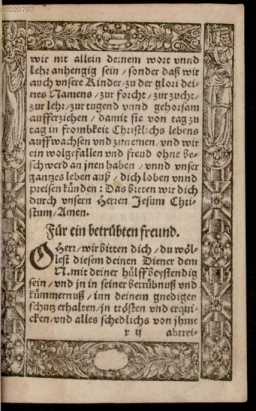 wir nit allein deinem wort vnnd
lehr anhengig sein / sonder daß wir
auch vnsere Kinder / zu der glori dei-
nes Namens / zur forcht / zur zucht /
zur lehr / zur tugend vnnd gehorsam
aufferziehen / damit sie von tag zu
tag in frombkeit Christlichs lebens
auffwachsen vnd zunemen, vnd wir
ein wolgefallen vnd freud ohne be-
schwerd an jnen haben / vnnd vnser
gantzes leben auß / dich loben vnnd
preisen künden: Das bitten wir dich
durch vnsern Herren Jesum Chri-
stum / Amen.
Für ein betrübten freund.
O Herr / wir bitten dich / du wöl-
lest disem deinen Diener dem
N. mit deiner hülff beystendig
sein / vnd jn in seiner betrübnuß vnd
kümmernuß / inn deinem gnediger
schutz erhalten / jn trösten vnd erqui-
cken / vnd alles schedlichs von jhme
r ij abtrei-